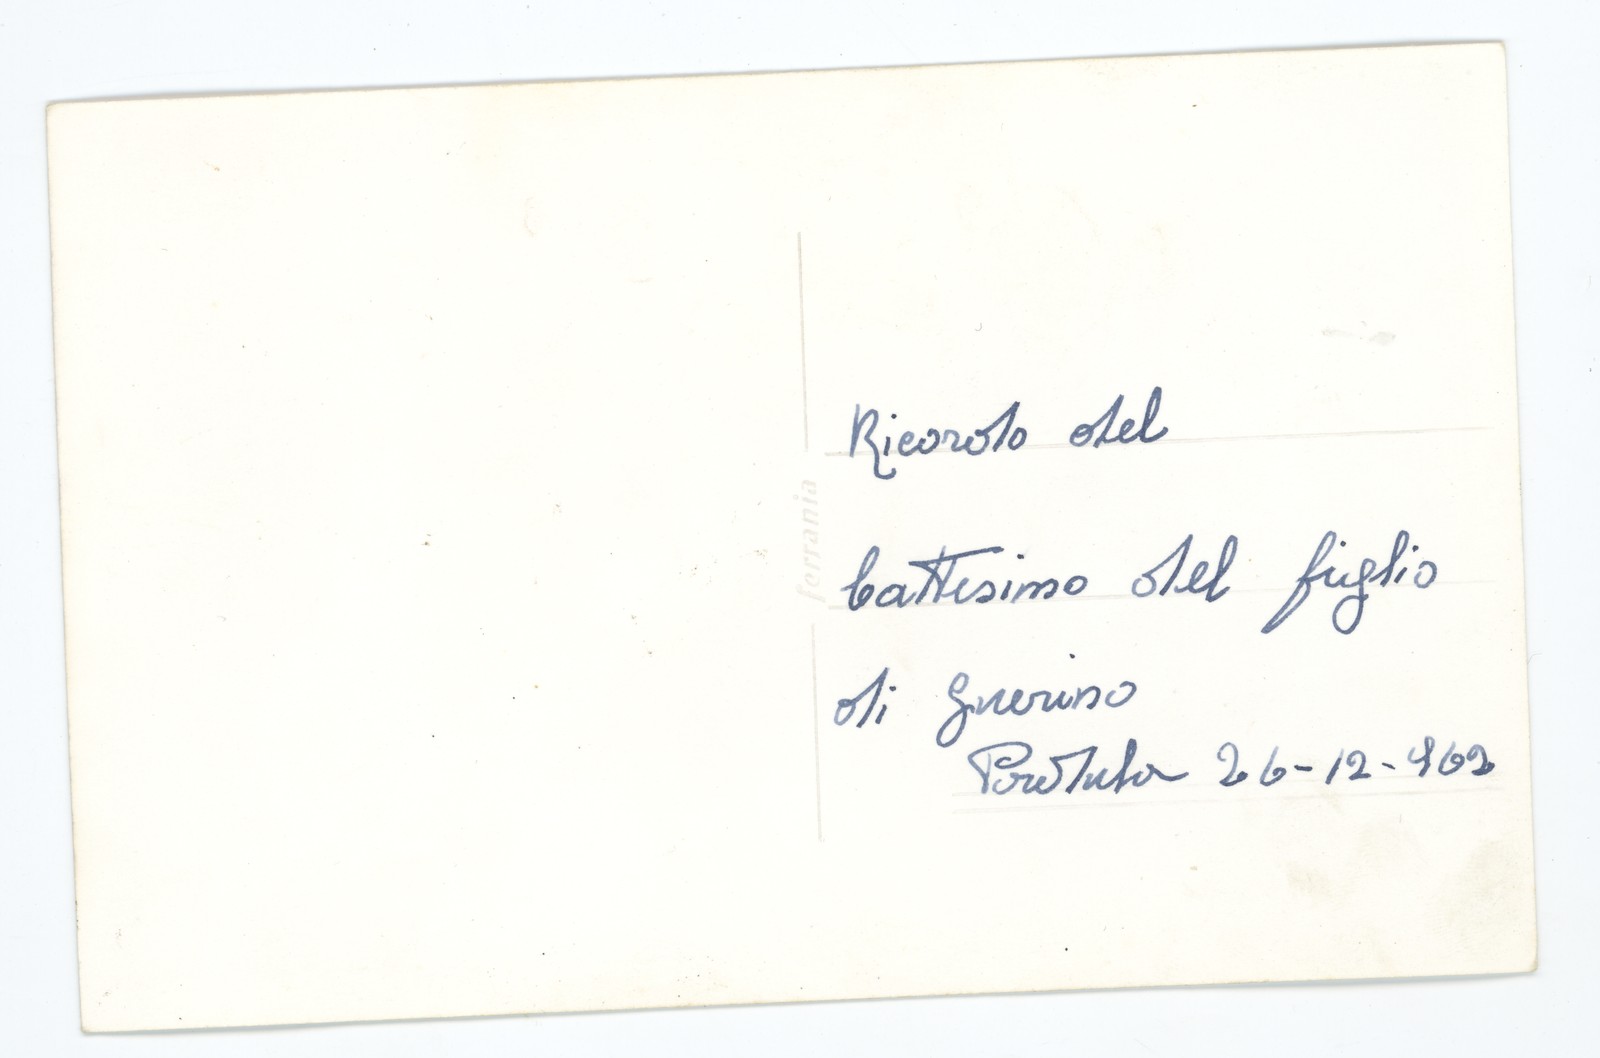 ferrania
Ricordo del
battesimo del figlio
di Guerino
26-12-962